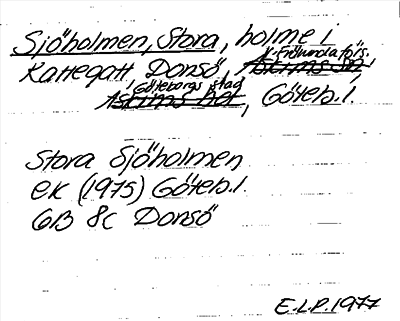 Sjöholmen, Stora, holme i
Kattegatt Donsö, V. Frölunda förs.
Göteborgs stad, Göteb. l.
Stora Sjöholmen
ek (1975) Göteb. l.
6B 8c Donsö
E.L.P. 1977